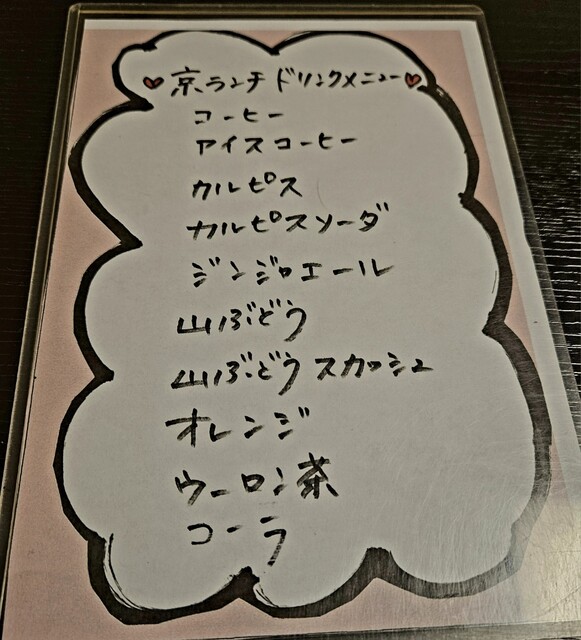 京ランチ ドリンクメニュー
コーヒー
アイスコーヒー
カルピス
カルピスソーダ
ジンジャエール
山ぶどう
山ぶどうスカッシュ
オレンジ
ウーロン茶
コーラ